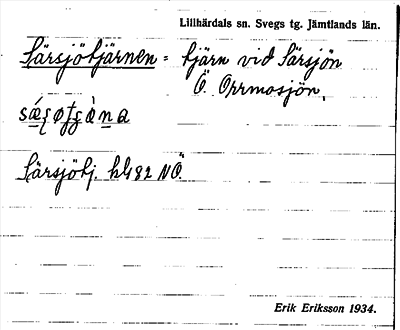 Lillhärdals sn. Svegs tg. Jämtlands län.
Särsjötjärnen = tjärn vid Särsjön
Ö. Orrmosjön.
Särsjötj. hbl 82 NÖ.
Erik Eriksson 1934.